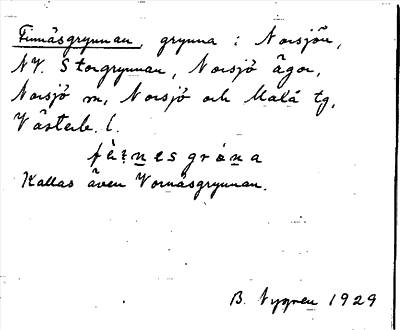 Finnäsgrynnan, grynna i Norsjön,
NV. Storgrynnan, Norsjö ägor,
Norsjö sn, Norsjö och Malå tg,
Västerb. l.
Kallas även Vornäsgrynnan.
B. Nygren 1929